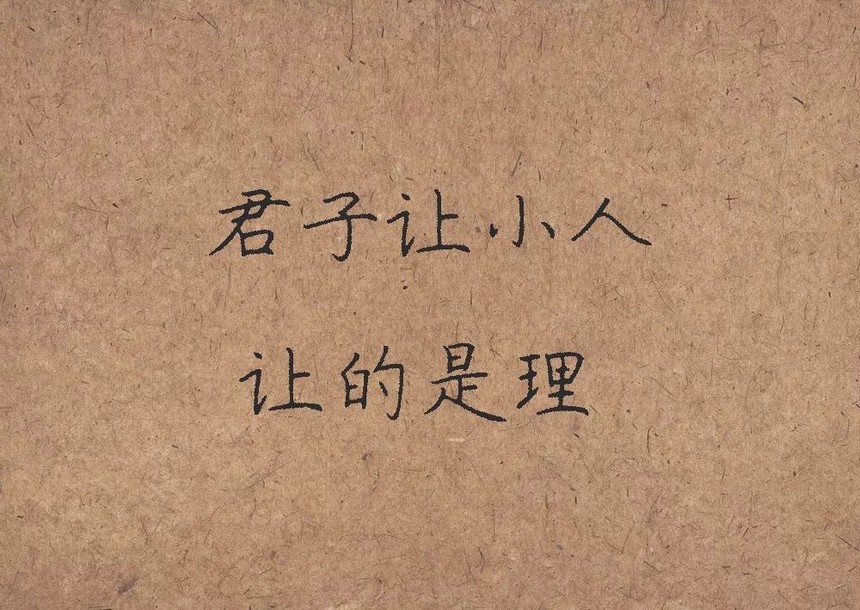 君子让小人
让的是理